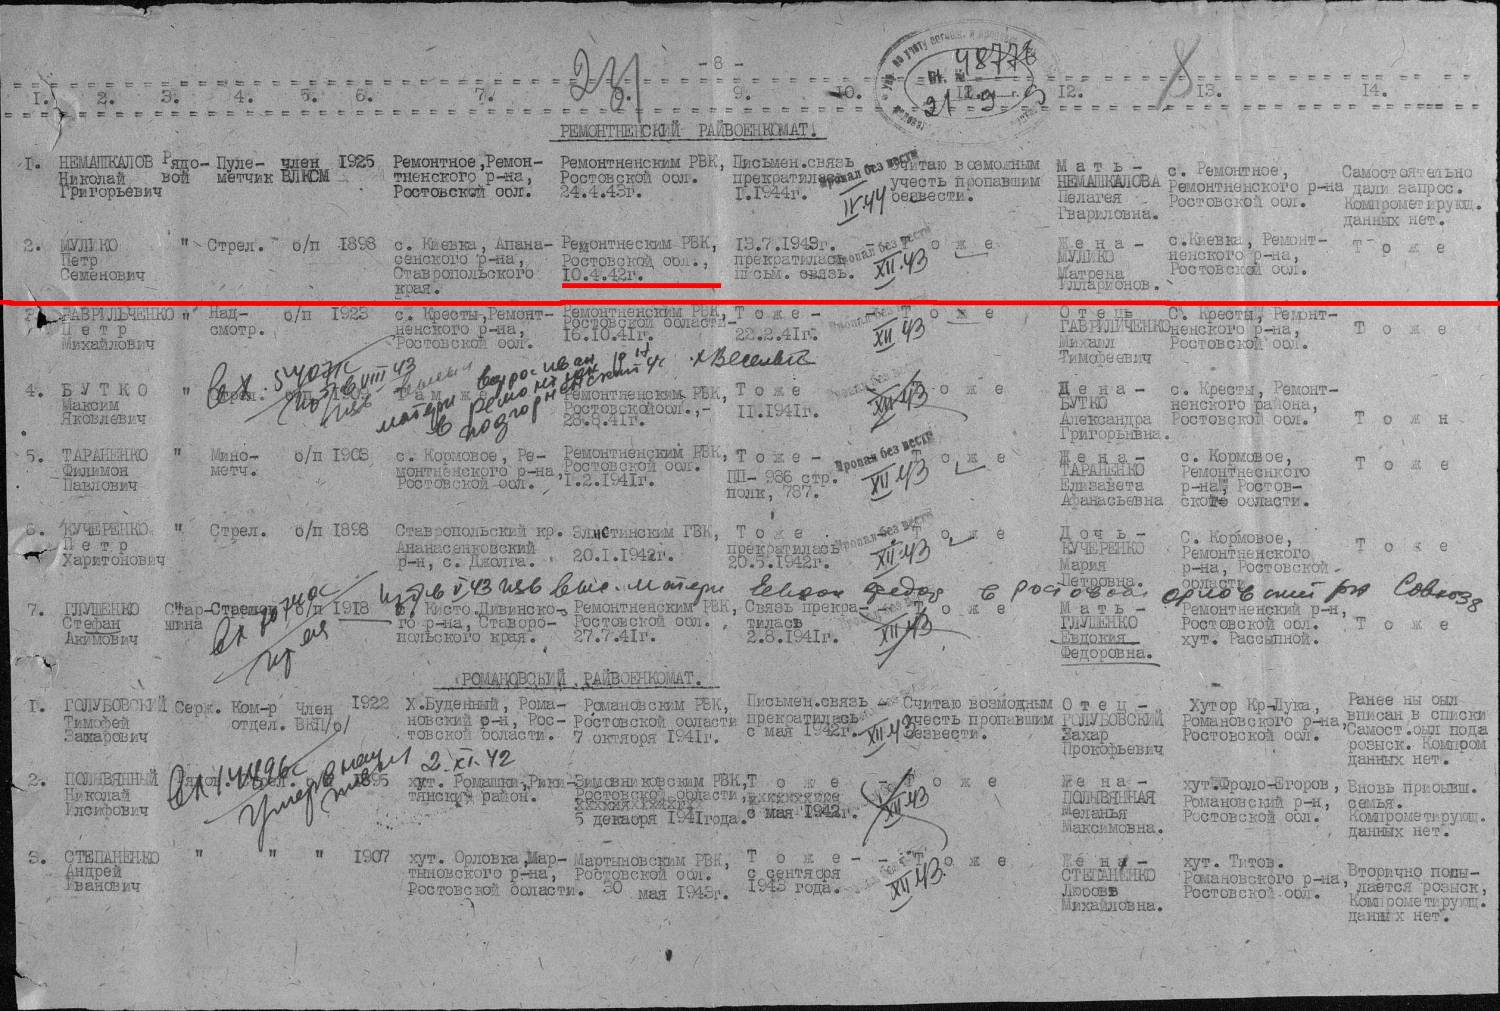 - 8 -
48773
1. 2. 3. 4. 5. 6. 7. 9. 10. 12. 13. 14.
РЕМОНТНЕНСКИЙ РАЙВОЕНКОМАТ.
1. НЕМАШКАЛОВ Рядо- Пуле- член 1925 Ремонтное,Ремон- Ремонтненским РВК, Письмен.связь Пропал без вести Считаю возможным Мать- с. Ремонтное, Самостоятельно
Николай вой метчик ВЛКСМ тненского р-на, Ростовской обл. прекратилась учесть пропавшим НЕМАШКАЛОВА Ремонтненского р-на дали запрос.
Григорьевич Ростовской обл. 24.4.43г. 1.1944г. IV.44 безвести. Пелагея Ростовской обл. Компрометирующ.
Гвариловна. данных нет.
2. МУЛИКО " Стрел. б/п 1898 с. Киевка, Апана- Ремонтнеским РВК, 13.7.1943г. Пропал без вести - Тоже Жена- с.Киевка, Ремонт- Тоже
Петр сенского р-на, Ростовской обл., прекратилась XII.43 МУЛИКО ненского р-на,
Семенович Ставропольского 10.4.42г. письм. связь. Матрена Ростовской обл.
края. Илларионов.
3. ГАВРИЛЬЧЕНКО " Над- б/п 1923 с. Кресты,Ремонт- Ремонтненским РВК, Тоже- Пропал без вести - Тоже Отець С. Кресты, Ремонт-
Петр смотр. ненского р-на, Ростовской области- XII.43 ГАВРИЛИЧЕНКО ненского р-на, Тоже
Михайлович Ростовской обл. 16.10.41г. 22.2.41г. Михаил Ростовской обл.
Тимофеевич
4. БУТКО " б/п Там же Ремонтненским РВК, Тоже Тоже Дена- с. Кресты, Ремонт-
Максим Ростовскойобл.,- 11.1941г. XII.43 БУТКО ненского района,
Яковлевич 28.8.41г. Александра Ростовской обл. Тожн
Григорьнвна.
5. ТАРАНЕНКО " Мино- б/п 1908 с. Кормовое, Ре- Ремонтненским РВК, Тоже- Пропал без вести Тоже Жена- с. Кормовое, Тоже
Филимон метч. монтненского р-на, Ростовской обл. ПП- 986 стр. XII.43 ТАРАНЕНКО Ремонтненского
Павлович Ростовской обл. 1.2.1941г. полк, 787. Елизавета р-на, Ростов-
Афанасьевна ской области.
6. КУЧЕРЕНКО " Стрел. б/п 1898 Ставропольский кр. Элистинским ГВК, Тоже Пропал без вести Тоже Дочь- С. Кормовое, Тоже
Петр Апанасенковский 20.1.1942г. прекратилась XII.43 КУЧЕРЕНКО Ремонтненского
Харитонович р-н, с. Джолга. 20.5.1942г. Мария р-на, Ростовской
Петровна. области.
7. ГЛУЩЕНКО Стар- б/п 1918 с. Кисто,Дивинско- Ремонтненским РВК, Связь прекра- - Тоже Мать- Ремонтненский р-н,
Стефан шина го р-на, Ставро- Ростовской обл. тилась XII.43 ГЛУЩЕНКО Ростовской обл. Тоже
Акимович польского края. 27.7.41г. 2.8.1941г. Евдокия хут. Рассыпной.
Федоровна.
РОМАНОВСКИЙ РАЙВОЕНКОМАТ.
1. ГОЛУБОВСКИЙ Серж. Ком-р Член 1922 Х.Буденный, Рома- Романовским РВК, Письмен.связь - Считаю возможным Отец- Хутор Кр-Лука, Ранее ны был
Тимофей отдел. ВКП/б/ новский р-н, Рос- Ростовской области прекратилась XII.43 учесть пропавшим ГОЛУБОВСКИЙ Романовского р-на, вписан в списки
Захарович товской области. 7 октября 1941г. с мая 1942г. безвести. Захар Ростовской обл. Самост.был пода
Прокофьевич розыск. Компром
данных нет.
2. ПОЛИВЯННЫЙ 1895 2.XI.42 хут. Ромашки,Рики- Зимовниковским РВК, Тоже - Тоже Жена- хут.Фроло-Егоров, Вновь прибывш.
Николай тянский район. Ростовской области, с мая 1942г. XII.43 ПОЛИВЯННАЯ Романовский р-н, семья.
Иасифович 5 декабря 1941года. Меланья Ростовской обл. Компрометирующ.
Максимовна. данных нет.
3. СТЕПАНЕНКО " " " 1907 хут. Орловка,Мар- Мартыновским РВК, Тоже- - Тоже Жена- хут. Титов. Вторично попы-
Андрей тыновского р-на, Ростовской обл. с сентября XII.43. СТЕПАНЕНКО Романовского р-на, дается розыск,
Иванович Ростовской области. 30 мая 1943г. 1943 года. Любовь Ростовской обл. Компрометирующ.
Михайловна. данных нет.